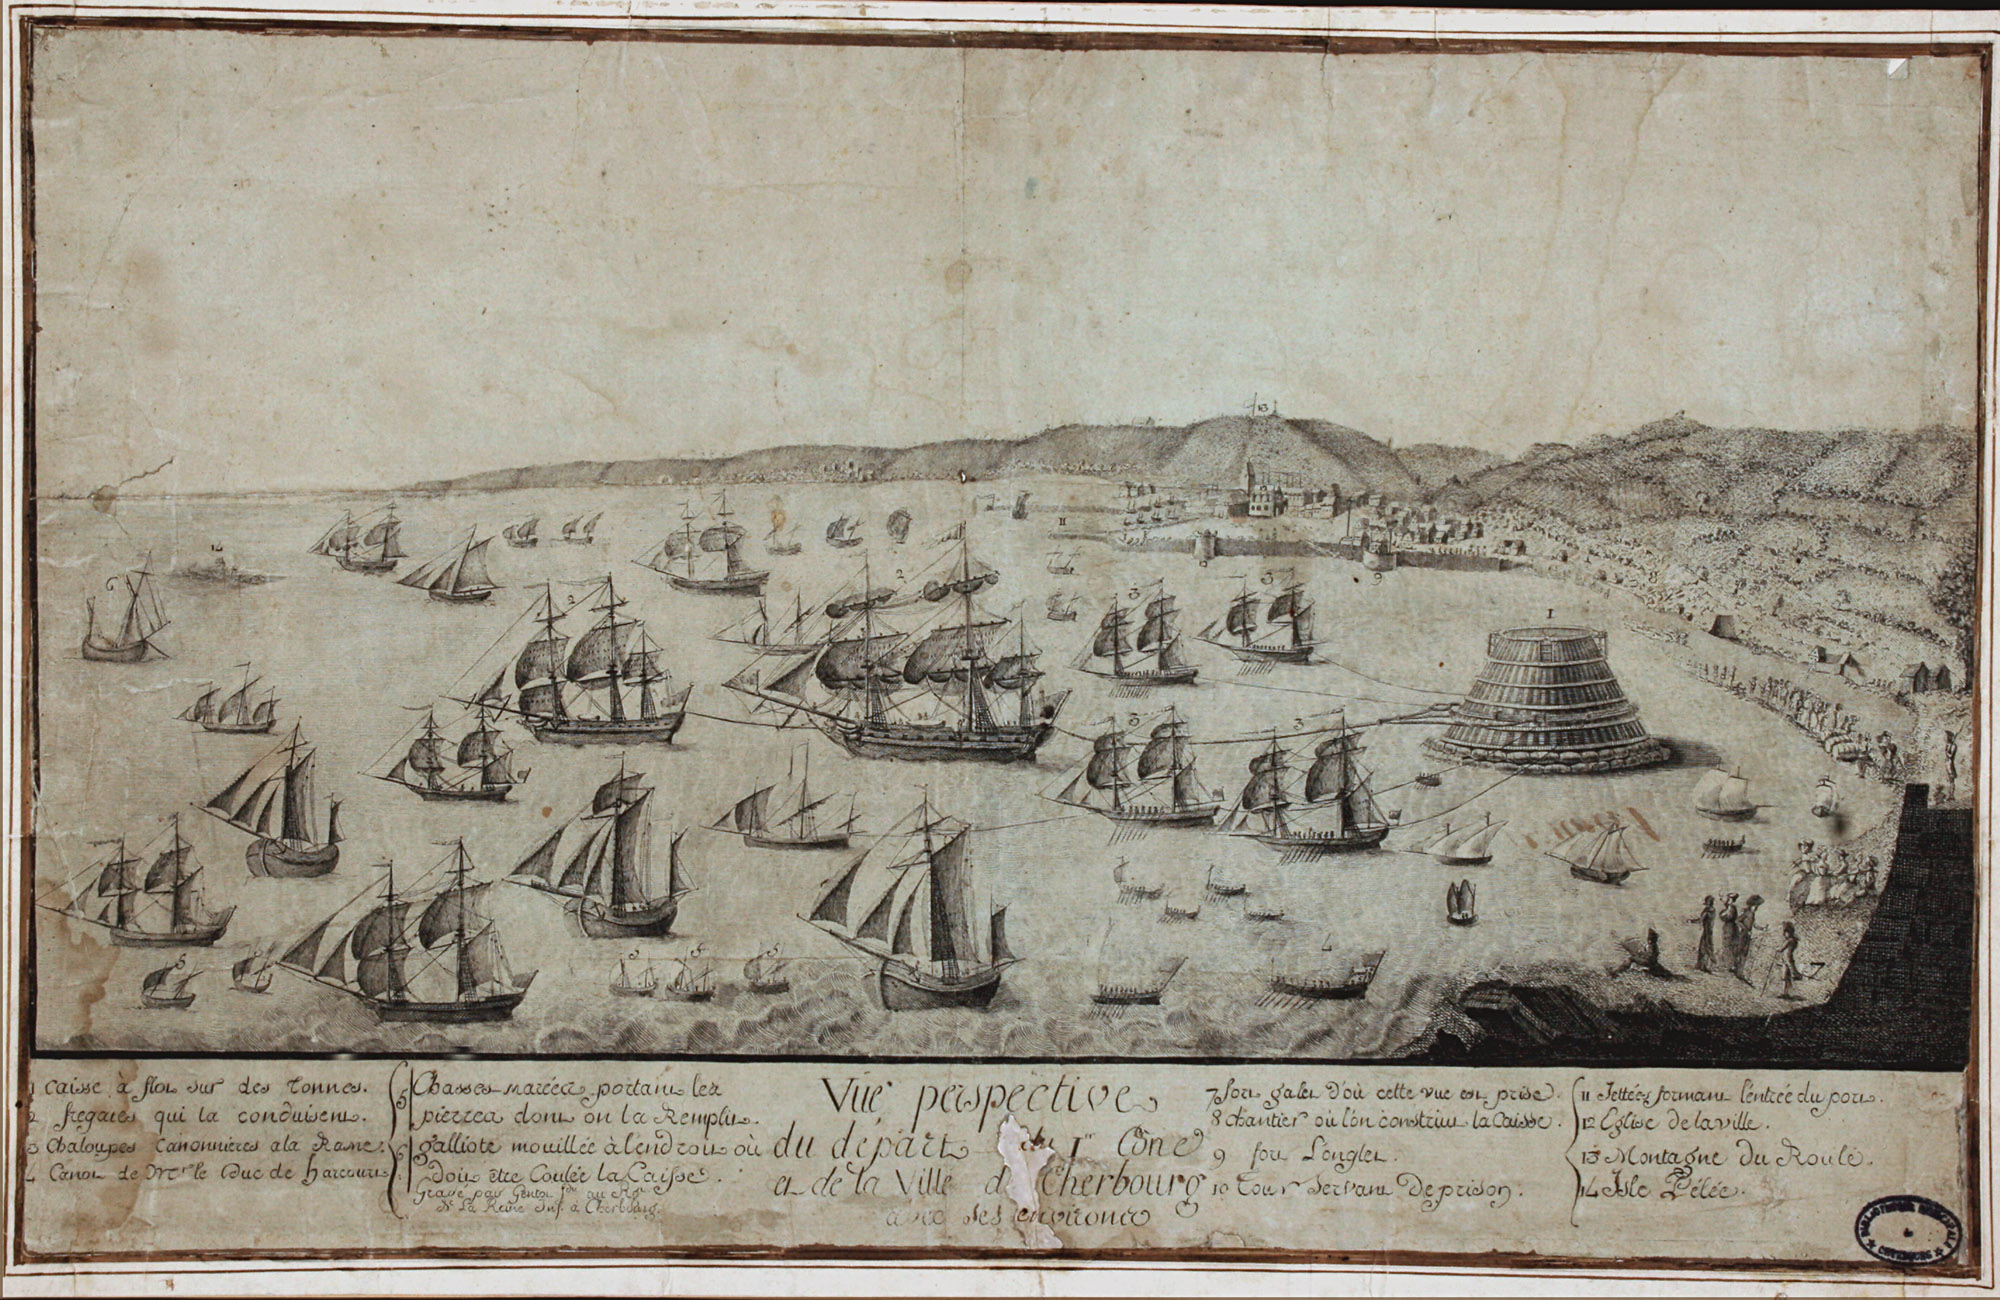 1 Caisse à flot sur des tonnes.
2 fregates qui la conduisent.
3 Chaloupes canonnières a la Rame.
4 Canot de Mr le Duc de harcourt
5 Chasses-marées portant les
pierres dont on la Remplit.
6 galliote mouillée à lendroit où
doit être Coulée la Caisse.
Gravé par au Rgt
de La Reine Inf. à Cherbourg.
Vüe perspective
du départ du 1er Cône
et de la Ville de Cherbourg
avec ses environs
7 fort galet d'où cette vue est prise.
8 Chantier où l'on construit la Caisse.
9 fort Longlet.
10 Tour Servant De prison.
11 Jettées formant l'éntrée du port.
12 Eglise de la ville.
13 Montagne du Roule.
14 Isle Pélée.